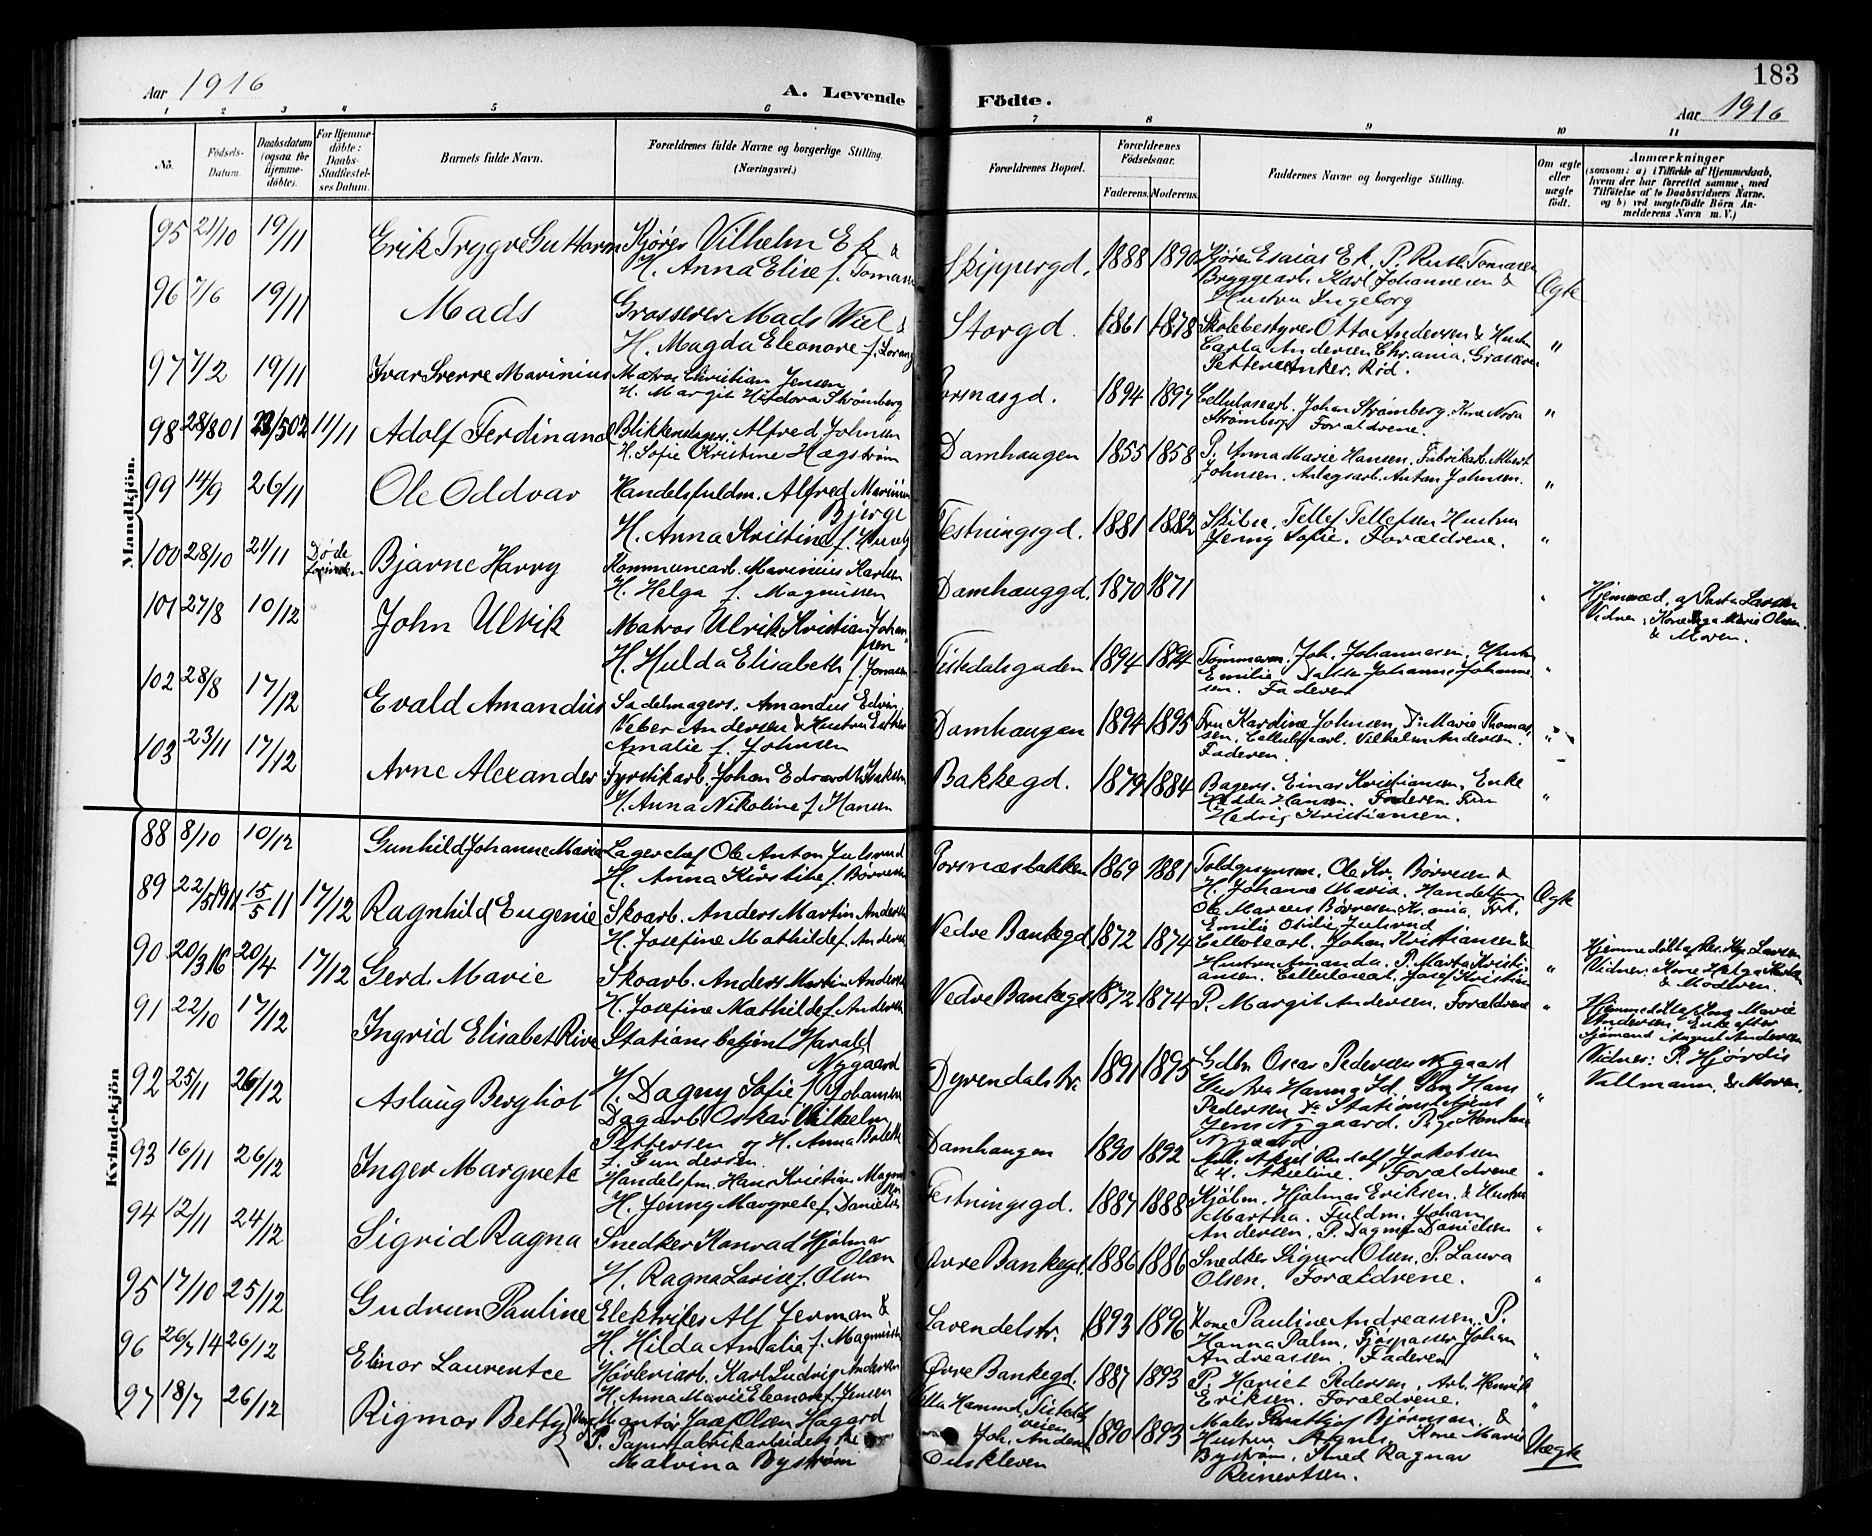 183
Aar 1916
A. Levende
Födte.
Aar 1916
1 2 3 4 5 6 7 8 9 10 11
No.
Födsels-
Datum.
Daabsdatum
(ogsaa for
Hjemme-
döbte).
For Hjemme-
döbte:
Daabs-
Stadfæstel-
ses Datum.
Barnets fulde Navn.
Forældrenes fulde Navne og borgerlige Stilling.
(Næringsvei.)
Forældrenes Bopæl.
Forældrenes
Födselsaar.
Faderens. Moderens.
Faddernes Navne og borgerlige Stilling.
Om ægte
eller
uægte
födt.
Anmærkninger
(saasom: a) i Tilfælde af Hjemmedaab,
hvem der har forrettet samme, med
Tilföielse af to Daabsvidners Navne,
og b) ved uægtefödte Börn An-
melderens Navn m. V.)
Mandkjön.
95 21/10 19/11 Erik Trygve Guttorm
Kjører Vilhelm Ek &
H. Anna Elise f. Tomasen
Skippergd. 1888 1890
Kjører Esaias Ek, P. Ruth Tomasen
Bryggearb. Karl Johannesen &
Hustru Ingeborg
Ægte
96 7/6 19/11 Mads
Grosserer Mads Wiel &
H. Magda Eleonore f. Lorang
Storgd. 1861 1878
Skolebestyrer Otto Andersen & Hustru
Carla Andersen Chr.ania, Grosserer
Petter Anker. Röd.
"
97 7/2 19/11 Ivar Sverre Marinius
Matros Christian Jensen
H. Margit Hildora Strømberg
Torsnæsgd. 1894 1897
Cellulosearb. Johan Strømberg. Kone Nora
Strømberg Forældrene.
"
98 28/8 01 23/5 02 11/11 Adolf Ferdinand
Blikkenslager. Alfred Johnsen
H. Sofie Kristine Hægstrøm
Damhaugen 1855 1858
P. Anna Marie Hansen, Fabrikarb. Albert
Johnsen. Anlægsarb. Anton Johnsen.
"
99 14/9 26/11 Ole Oddvar
Handelsfuldm. Alfred Marinius
Bjerge
H. Anna Kristine f.
Festningsgd. 1881 1882
Skibsr. Tellef Tellefsen Hustru
Jenny Sofie. Forældrene.
"
100 28/10 21/11 Døde
forinden
Bjarne Harry
Kommunearb. Marinius Karlsen
H. Helga f. Magnussen
Damhauggd. 1870 1871
"
Hjemmed. af Pasta Larsen
Vidner: Kone Inga Marie Olsen.
& Moren.
101 27/8 10/12 John Ulrik
Matros Ulrik Kristian Johan-
sen
H. Hulda Elisabeth f. Jonassen
Tistedalsgaden 1894 1894
Tømmerm. Joh. Johannesen, Hustru
Emilie Datter Johanne Johanne-
sen. Faderen
"
102 28/8 17/12 Evald Amandus
Sadelmagers. Amandus Edvin
Veber Andersen & Hustru Esther
Amalie f. Johnsen
Damhaugen 1894 1895
Fru Karoline Johnsen, P. Marie Thomas-
sen. Cellulosearb. Vilhelm Andersen.
Faderen.
"
103 23/11 17/12 Arne Alexander
Fyrstikarb. Johan Edvardt Isaksen
H. Anna Nikoline f. Hansen
Bakkegd. 1879 1884
Bagers. Einar Kristiansen, Enke
Hulda Hansen. Faderen. Fru
Hedvig Kristiansen.
"
Kvindekjön
88 8/10 10/12 Gunhild Johanne Marie
Lagerchef Ole Anton Julsrud
H. Anna Kirstine f. Børresen
Torsnæsbakken 1869 1881
Toldopsynsm. Ole Kr. Børresen &
H. Johanne Maria. Handelsm.
Ole Marcus Børresen Kr.ania. Frk.
Emilie Otilie Julsrud
Ægte
89 22/5 1911 15/5 11 17/12 Ragnhild Eugenie
Skoarb. Anders Martin Andersen
H. Josefine Mathilde f. Andersen
Nedre Bankegd 1872 1874
Cellosearb. Johan Kristiansen &
Hustru Amanda. P. Marta Kristi-
ansen. Cellulosearb. Josef Kristiansen
"
Hjemmedöbt af Res. Kap. Larsen
Vidner: Kone Helga Karlsen
& Moderen.
90 20/3 16 20/4 17/12 Gerd Marie
Skoarb. Anders Martin Andersen
H. Josefine Mathilde f. Andersen
Nedre Bankegd 1872 1874
P. Margit Andersen. Forældrene
"
Hjemmedöbt af Lone Marie
Andersen, Enke efter
Sjömand August Andersen
Vidner: P. Hjørdis
Vallmann. & Moren.
91 22/10 17/12 Ingrid Elisabet Rive
Stationsbetjent Harald
Nygaard
H. Dagny Sofie f. Johansen
Dyrendalstr. 1891 1895
Gdbr. Oscar Pedersen Nygaard
Hustru Hanna Id. Hans
Pedersen Id. Stationsbetjent
Jens Nygaard. Pige
Nygaard
"
92 25/11 26/12 Aslaug Bergliot
Dagarb. Oskar Vilhelm
Pettersen og H. Anna Bolette
f. Gundersen.
Damhaugen 1890 1892
Arb. Aksel Rudolf Jakobsen
& H. Akseline Forældrene
"
93 16/11 26/12 Inger Margrete
Handelsfm. Hans Kristian Magnus-
sen
H. Jenny Margrete f. Danielsen
Festningsgd. 1887 1888
Kjøbm. Hjalmar Eriksen. & Hustru
Martha. Fuldm. Johan
Andersen, P. Dagmar Danielsen
"
94 12/11 24/12 Sigrid Ragna
Snedker Konrad Hjalmar
Olsen
H. Ragna Lovise f. Olsen
Øvre Bankegd. 1886 1886
Snedker Sigurd Olsen, P. Laura
Olsen. Forældrene.
"
95 17/10 25/12 Gudrun Pauline
Elektriker Alf Jerman &
H. Hilda Amalie f. Magnussen
Lavendelstr. 1893 1896
Kone Pauline Andreassen. P.
Hanna Palm, Fjøspasser Johan
Andreassen. Faderen
"
96 26/7 14 26/12 Elinor Laurentze
Høvleriarb. Karl Ludvig Andersen
H. Anna Marie Eleonore f. Jensen
Øvre Bankegd. 1887 1893
P. Hariet Pedersen, Arb. Henrik
Eriksen. Forældrene.
"
97 18/7 26/12 Rigmor Betty
Montør Olsen Hagard
P. Papirfabrikarbeiderske
Malvina Bystrøm
Joh. Andersen
Tuskleven
1890 1893
Maler Frithjof Bjørnsen. &
Hustru Agnes, Kone Marie
Bystrøm. Smed Ragnar
Reinertsen.
Uægte